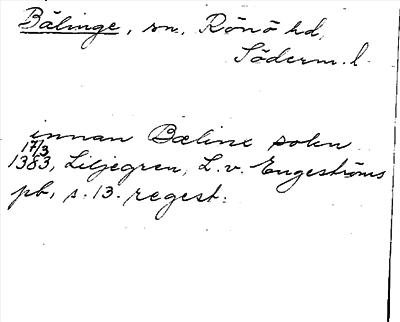 Bälinge, sn, Rönö hd,
Söderm. l.
innan Bæline sokn
17/3
1383, Liljegren, L. v. Engeströms
pb, s. 13. regest.